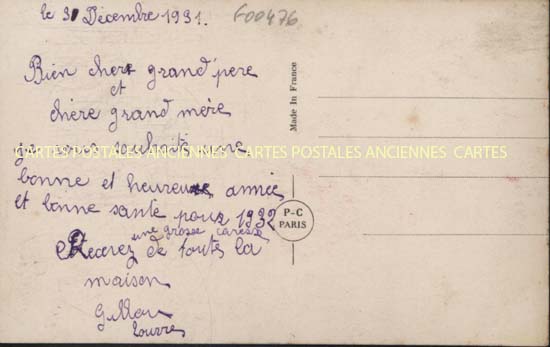 le 31 Décembre 1931.
F00476
Bien cher grand'père
et
chère grand mère
je vous souhaite une
CARTES POSTALES ANCIENNES CARTES POSTALES ANCIENNES CARTES
bonne et heureuse année
et bonne santé pour 1932
une grosse caresse
Recevez de toute la
maison
Louvres
Made In France
P-C
PARIS